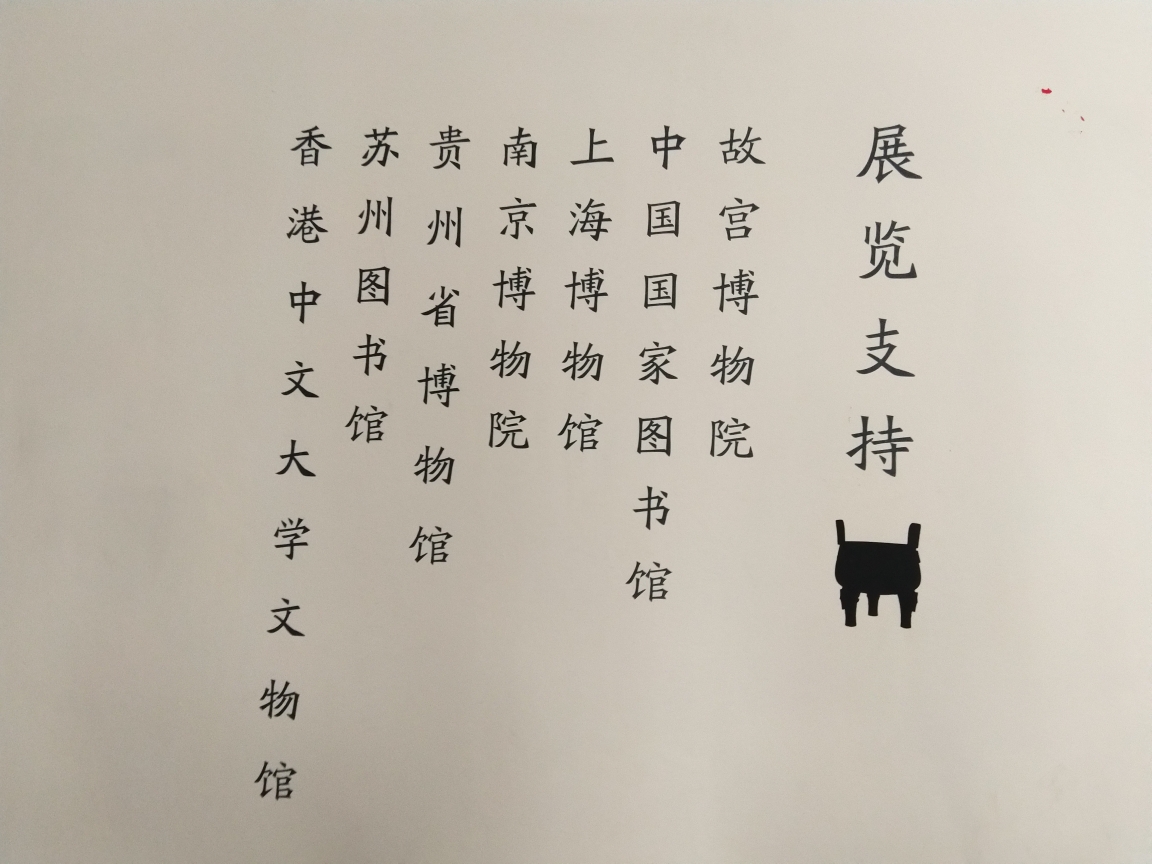 展览支持
故宫博物院
中国国家图书馆
上海博物馆
南京博物院
贵州省博物馆
苏州图书馆
香港中文大学文物馆